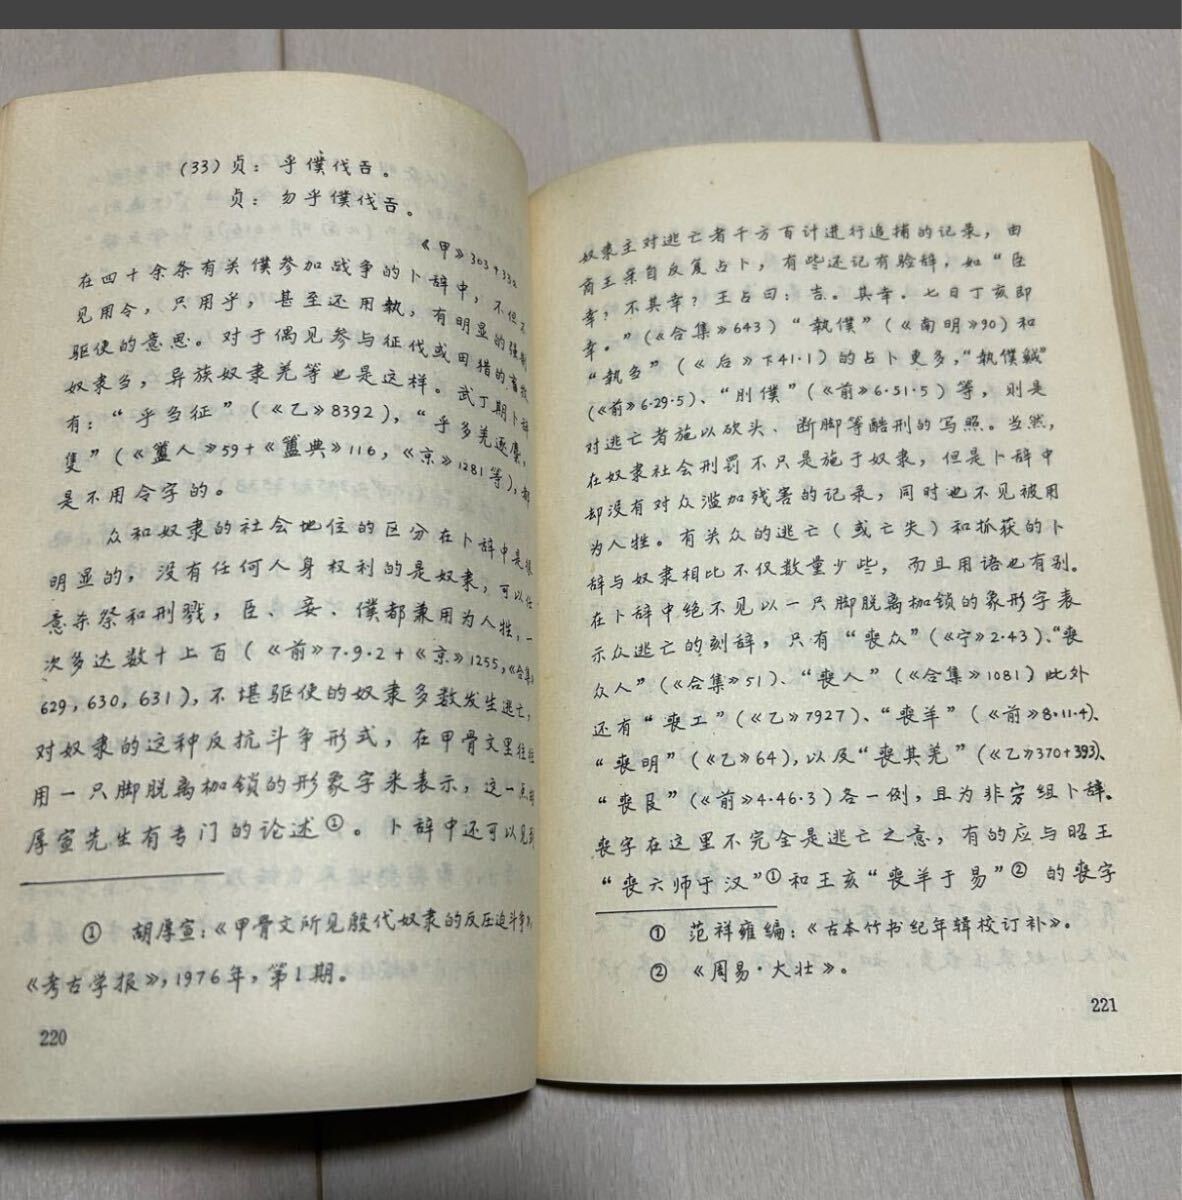 (33)贞：乎僕伐𢀛。
贞：勿乎僕伐𢀛。
《甲》3039 332
在四十余条有关僕参加战争的卜辞中，不但不
见用令，只用乎，甚至还用執，有明显的强制
驱使的意思。对于偶见参与征伐或田猎的
奴隶刍，异族奴隶羌等也是这样。武丁期卜辞
有：“乎刍征”（《乙》8392），“乎多羌逐麋，
隻”（《簠人》59+《簠典》116，《京》1281等），都
是不用令字的。
众和奴隶的社会地位的区分在卜辞中是很
明显的，没有任何人身权利的是奴隶，可以任
意杀祭和刑戮，臣、妾、僕都兼用为人牲，一
次多达数十上百（《前》7·9·2+《京》1255，《合集》
629，630，631），不堪驱使的奴隶多数发生逃亡，
对奴隶的这种反抗斗争形式，在甲骨文里往往
用一只脚脱离枷锁的形象字来表示，这一点胡
厚宣先生有专门的论述①。卜辞中还可以见到
① 胡厚宣：《甲骨文所见殷代奴隶的反压迫斗争》，
《考古学报》，1976年，第1期。
220
奴隶主对逃亡者千方百计进行追捕的记录，由
商王亲自反复占卜，有些还记有验辞，如“臣
㚔？不其㚔？王占曰：吉。其㚔。七日丁亥即
㚔。”（《合集》643）“執僕”（《南明》90）和
“執刍”（《后》下41·1）的占卜更多，“執僕”
（《前》6·29·5）、“刖僕”（《前》6·51·5）等，则是
对逃亡者施以砍头、断脚等酷刑的写照。当然，
在奴隶社会刑罚不只是施于奴隶，但是卜辞中
却没有对众滥加残害的记录，同时也不见被用
为人牲。有关众的逃亡（或亡失）和抓获的卜
辞与奴隶相比不仅数量少些，而且用语也有别。
在卜辞中绝不见以一只脚脱离枷锁的象形字表
示众逃亡的刻辞，只有“喪众”（《宁》2·43）、“喪
众人”（《合集》51）、“喪人”（《合集》1081）此外
还有“喪工”（《乙》7927）、“喪羊”（《前》8·11·4）、
“喪明”（《乙》64），以及“喪其羌”（《乙》370+393）、
“喪𠬝”（《前》4·46·3）各一例，且为非宾组卜辞。
喪字在这里不完全是逃亡之意，有的应与昭王
“喪六师于汉”①和王亥“喪羊于易”②的喪字
① 范祥雍编：《古本竹书纪年辑校订补》。
② 《周易·大壮》。
221